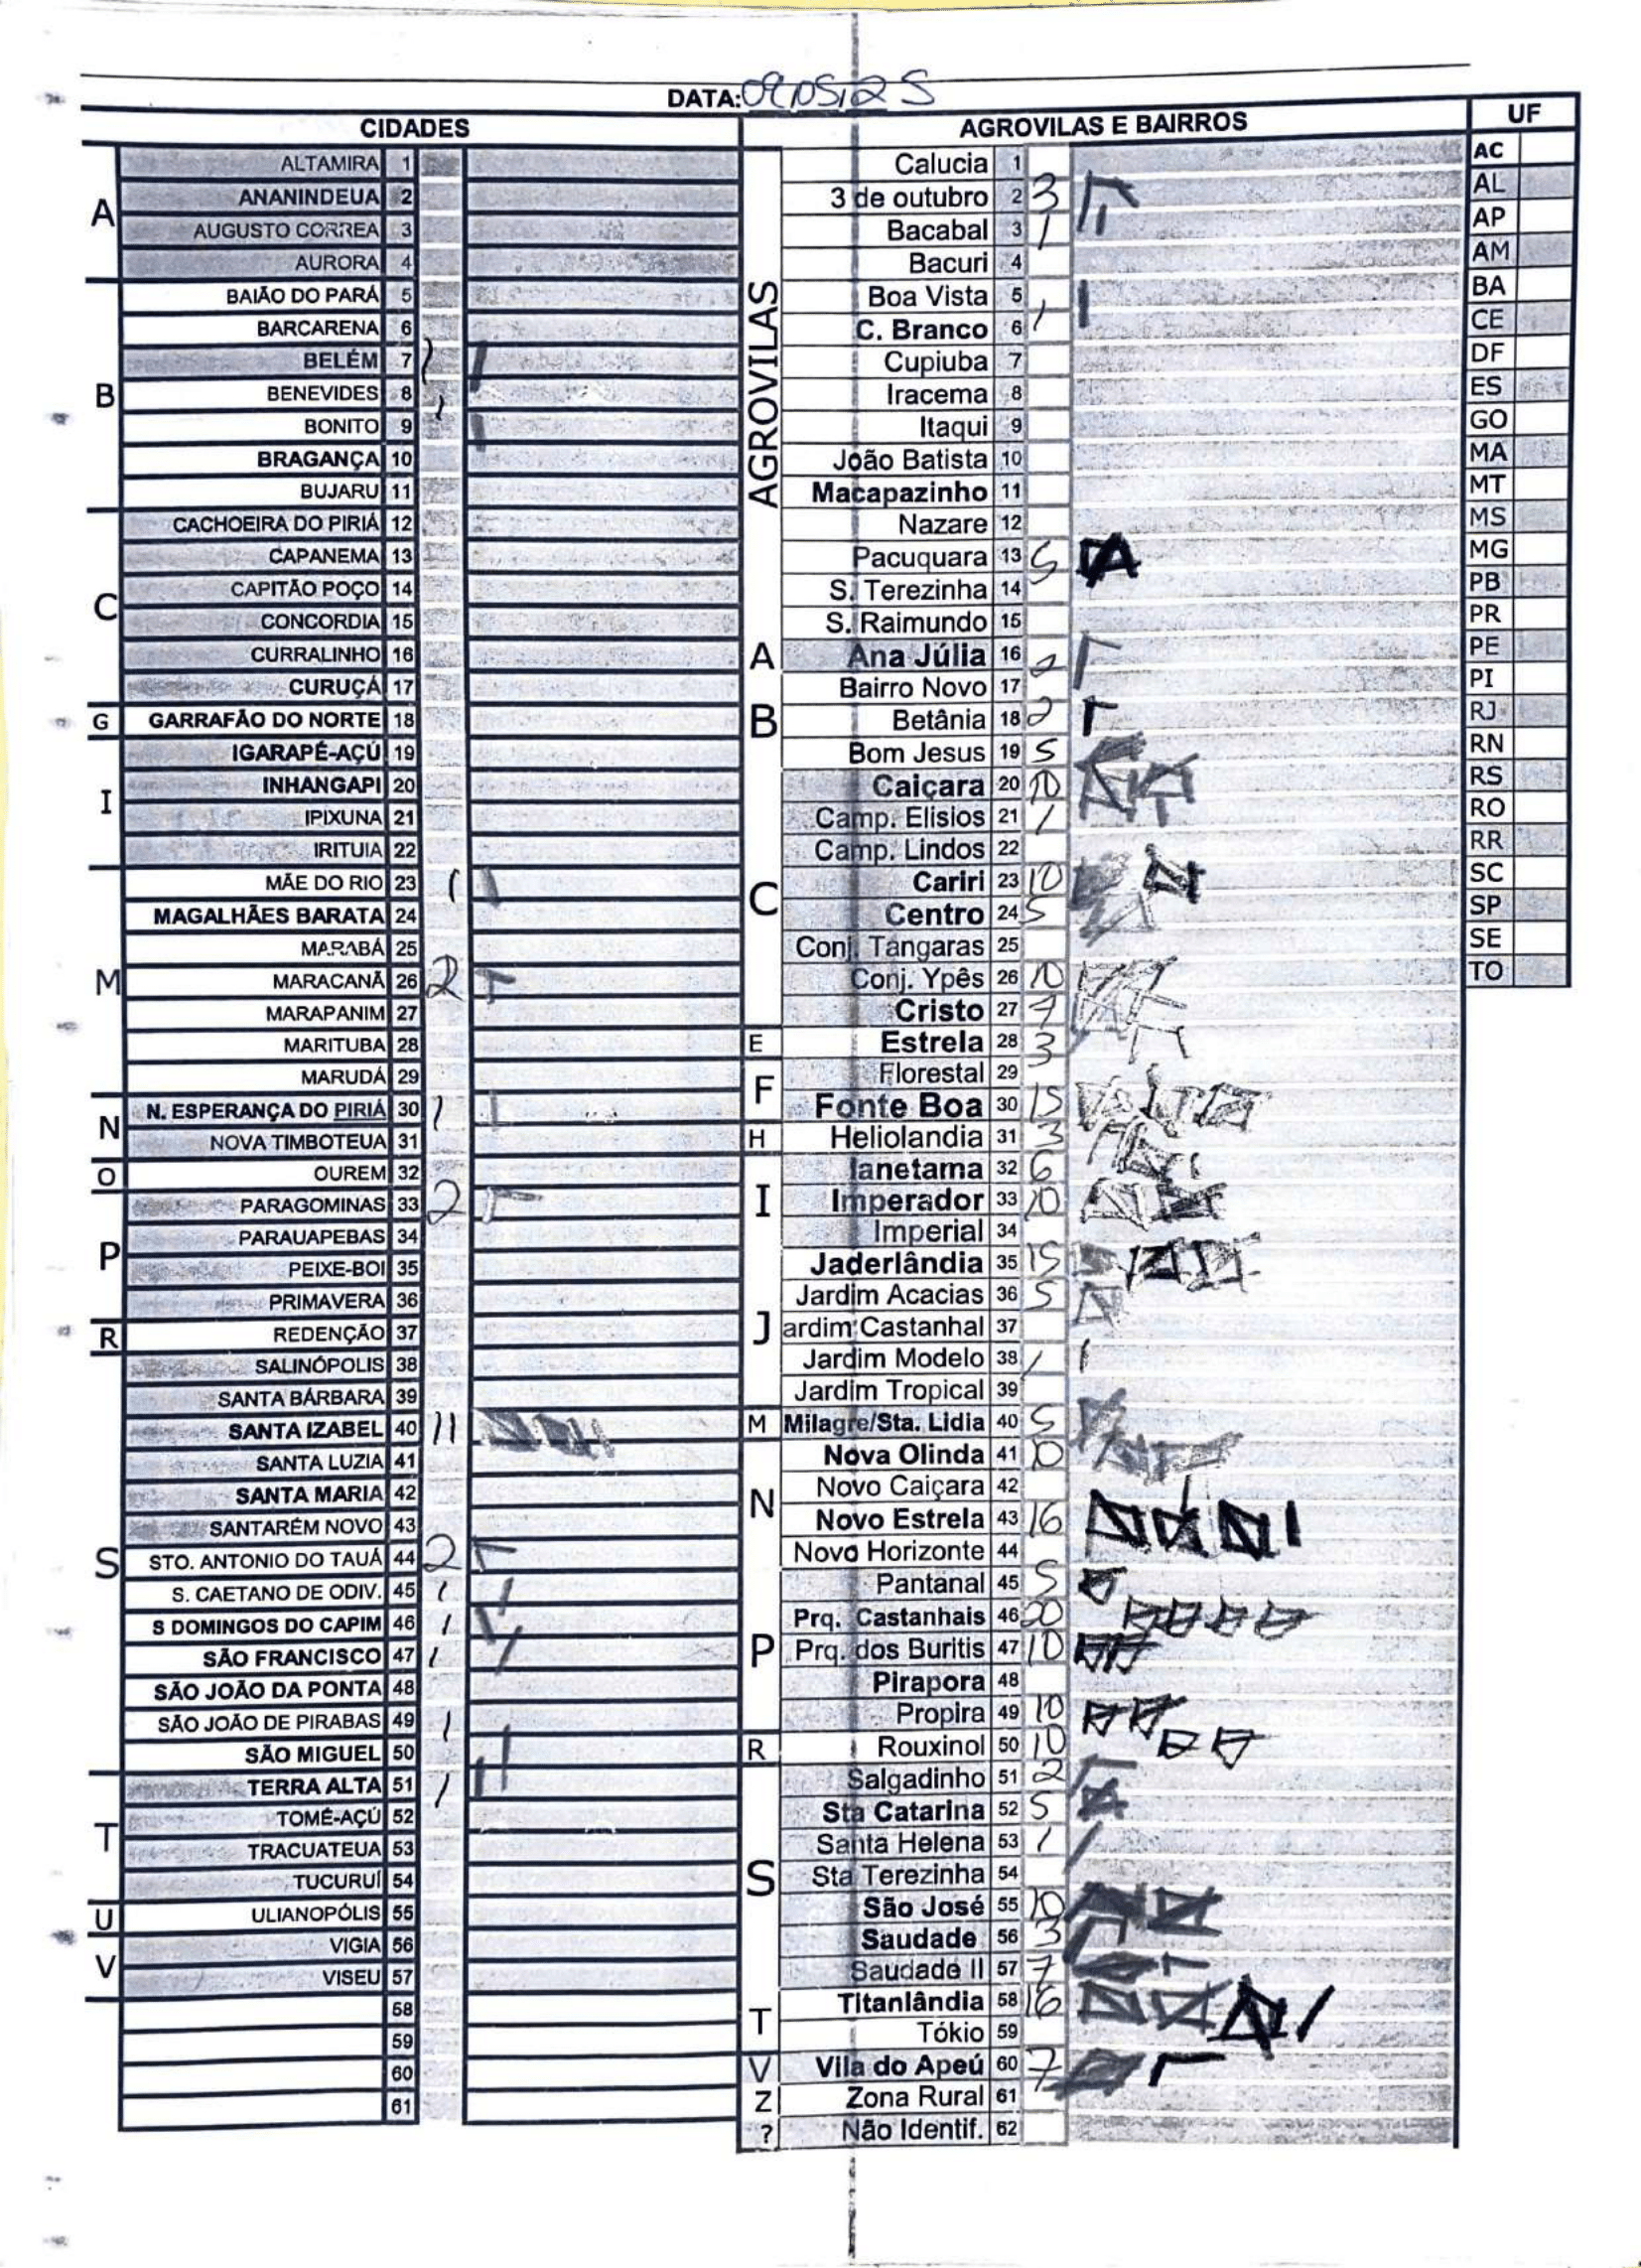 DATA: 09/05/25
CIDADES
A
ALTAMIRA 1
ANANINDEUA 2
AUGUSTO CORREA 3
AURORA 4
B
BAIÃO DO PARÁ 5
BARCARENA 6
BELÉM 7 1
BENEVIDES 8 1
BONITO 9
BRAGANÇA 10
BUJARU 11
C
CACHOEIRA DO PIRIÁ 12
CAPANEMA 13
CAPITÃO POÇO 14
CONCORDIA 15
CURRALINHO 16
CURUÇÁ 17
G
GARRAFÃO DO NORTE 18
I
IGARAPÉ-AÇÚ 19
INHANGAPI 20
IPIXUNA 21
IRITUIA 22
M
MÃE DO RIO 23 1
MAGALHÃES BARATA 24
MARABÁ 25
MARACANÃ 26 2
MARAPANIM 27
MARITUBA 28
MARUDÁ 29
N
N. ESPERANÇA DO PIRIÁ 30 1
NOVA TIMBOTEUA 31
O
OUREM 32
P
PARAGOMINAS 33 2
PARAUAPEBAS 34
PEIXE-BOI 35
PRIMAVERA 36
R
REDENÇÃO 37
S
SALINÓPOLIS 38
SANTA BÁRBARA 39
SANTA IZABEL 40 11
SANTA LUZIA 41
SANTA MARIA 42
SANTARÉM NOVO 43
STO. ANTONIO DO TAUÁ 44 2
S. CAETANO DE ODIV. 45 1
S DOMINGOS DO CAPIM 46 1
SÃO FRANCISCO 47 1
SÃO JOÃO DA PONTA 48
SÃO JOÃO DE PIRABAS 49 1
SÃO MIGUEL 50
T
TERRA ALTA 51 1
TOMÉ-AÇÚ 52
TRACUATEUA 53
TUCURUÍ 54
U
ULIANOPÓLIS 55
V
VIGIA 56
VISEU 57
58
59
60
61
AGROVILAS E BAIRROS
AGROVILAS
Calucia 1
3 de outubro 2 3
Bacabal 3 1
Bacuri 4
Boa Vista 5
C. Branco 6 1
Cupiuba 7
Iracema 8
Itaqui 9
João Batista 10
Macapazinho 11
Nazare 12
Pacuquara 13 5
S. Terezinha 14
S. Raimundo 15
A
Ana Júlia 16 2
B
Bairro Novo 17
Betânia 18 2
Bom Jesus 19 5
C
Caiçara 20 10
Camp. Elisios 21 1
Camp. Lindos 22
Cariri 23 10
Centro 24 5
Conj. Tangaras 25
Conj. Ypês 26 10
Cristo 27 7
E
Estrela 28 3
F
Florestal 29
Fonte Boa 30 15
H
Heliolandia 31 3
I
Ianetama 32 6
Imperador 33 10
Imperial 34
J
Jaderlândia 35 15
Jardim Acacias 36 5
ardim Castanhal 37
Jardim Modelo 38 1
Jardim Tropical 39
M
Milagre/Sta. Lidia 40 5
N
Nova Olinda 41 10
Novo Caiçara 42
Novo Estrela 43 16
Novo Horizonte 44
P
Pantanal 45 5
Prq. Castanhais 46 20
Prq. dos Buritis 47 10
Pirapora 48
Propira 49 10
R
Rouxinol 50 10
S
Salgadinho 51 2
Sta Catarina 52 5
Santa Helena 53 1
Sta Terezinha 54
São José 55 10
Saudade 56 3
Saudade II 57 7
T
Titanlândia 58 16
Tókio 59
V
Vila do Apeú 60 7
Z
Zona Rural 61
?
Não Identif. 62
UF
AC
AL
AP
AM
BA
CE
DF
ES
GO
MA
MT
MS
MG
PB
PR
PE
PI
RJ
RN
RS
RO
RR
SC
SP
SE
TO